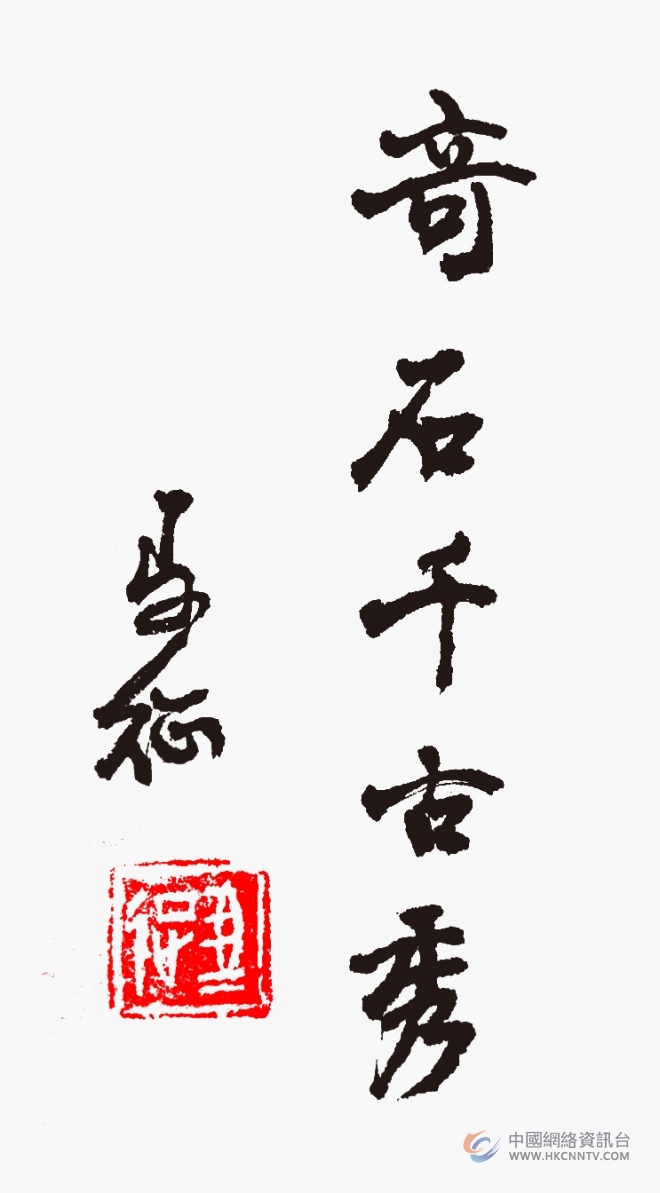 奇石千古秀
马征
中國網絡資訊台
WWW.HKCNNTV.COM